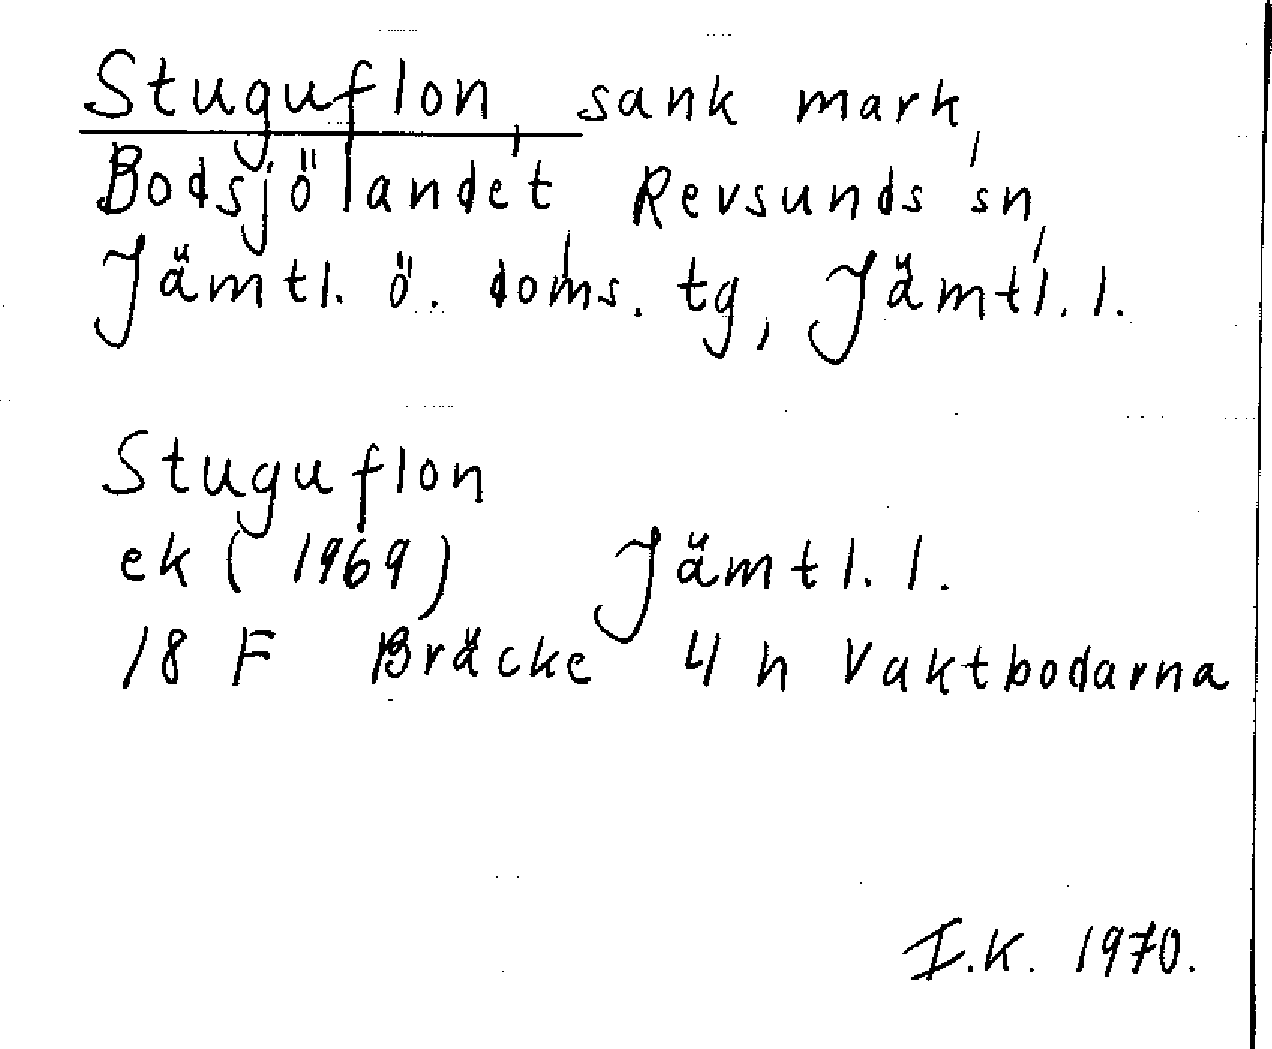 Stuguflon, sank mark,
Bodsjölandet, Revsunds sn,
Jämtl. ö. doms. tg, Jämtl. l.
Stuguflon
ek (1969) Jämtl. l.
18 F Bräcke 4 h Vaktbodarna
I.K. 1970.